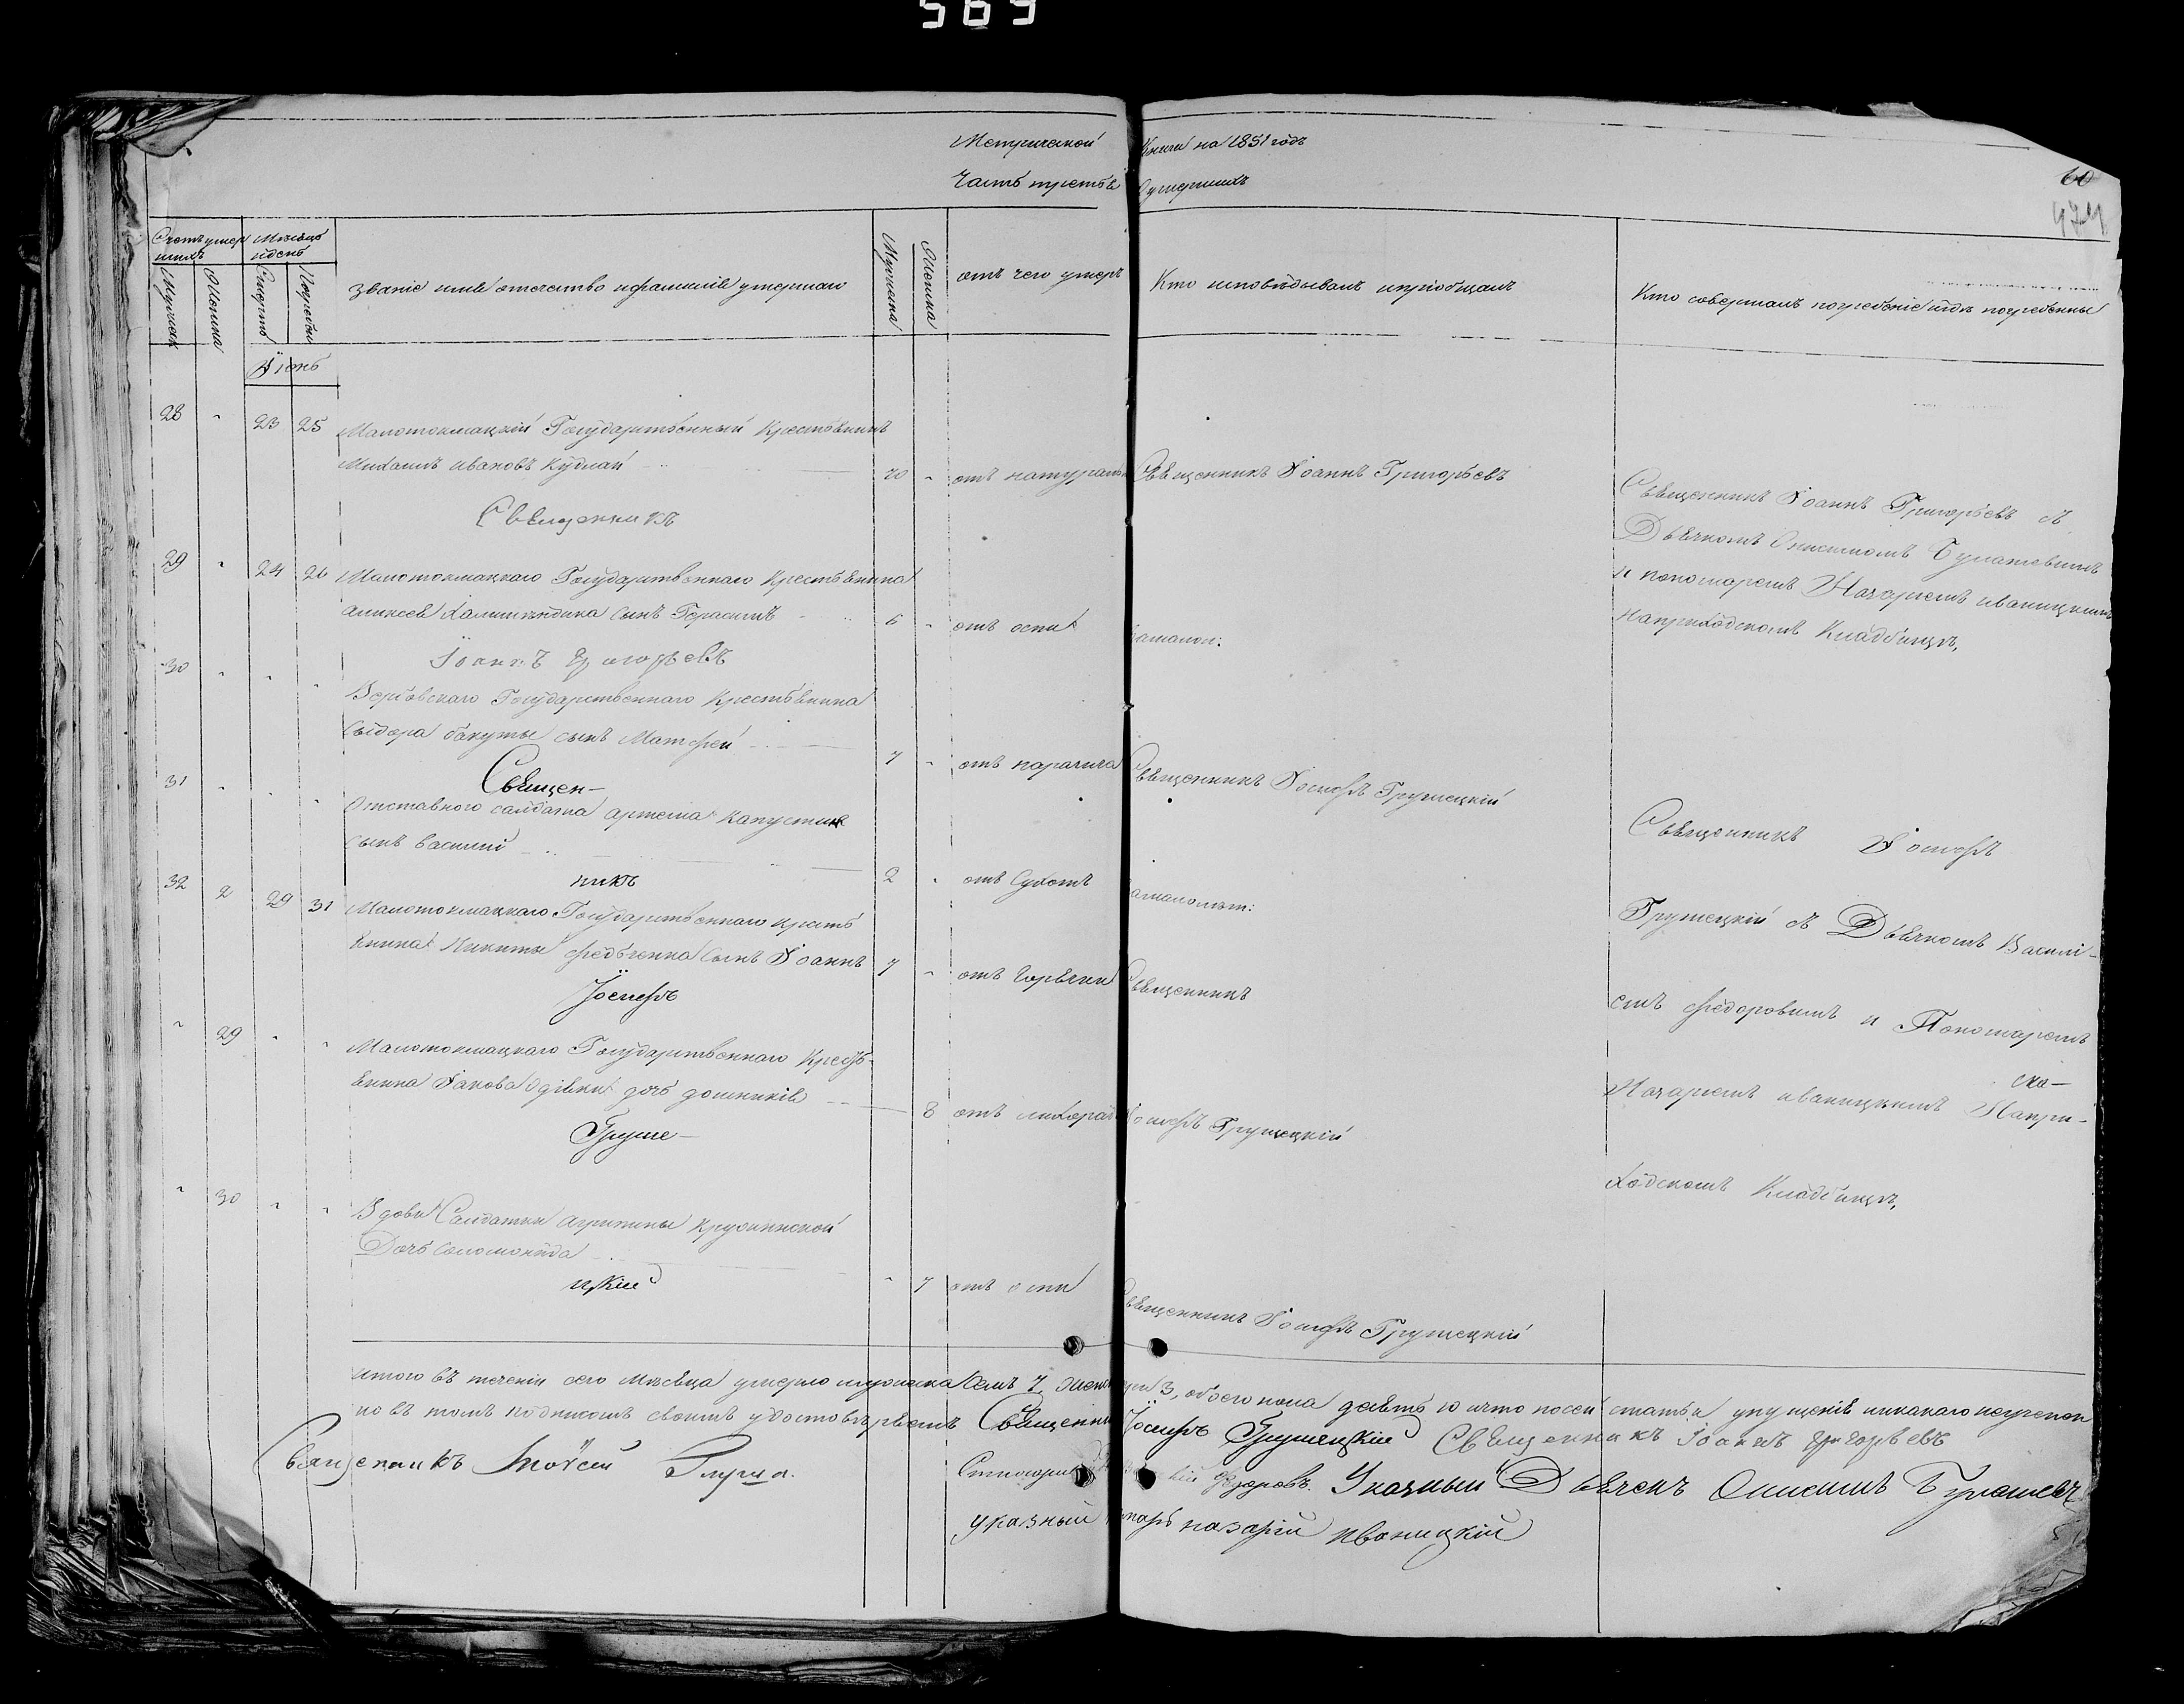 569
Метрической Книги на 1851 годъ
Часть третья о умершихъ
60
Счетъ умершихъ
Мѣсяцъ и день
Мужеска
Женска
Смерти
Погребен
Званіе имя отечество и фамилія умершаго
Мужеска
Женска
отъ чего умеръ
Кто исповѣдывалъ и пріобщалъ
Кто совершалъ погребеніе и гдѣ погребены
Іюнь
28 " 23 25 Малотокмацкій Государственный Крестьянинъ
Михаилъ ивановъ Кудлай 70 " отъ натураль Священникъ Іоаннъ Григорьевъ
Священникъ
Священникъ Іоаннъ Григорьевъ съ
Дьячкомъ Онисимомъ Булашевимъ
и пономаремъ Назаріемъ иваницкимъ
на приходскомъ Кладбищѣ,
29 " 24 26 Малотокмацкаго Государственнаго Крестьянина
Алексея сынъ Герасимъ 6 " отъ оспи
Іоаннъ Григорьевъ
30 " " " Вербовскаго Государственнаго Крестьянина
Сидора бакуты сынъ Матфей 7 " отъ паралича Священникъ Іосифъ Грушецкій
Священ-
31 " " " Отставного салдата артема Капусти
сынъ василій 2 " отъ Сухотъ
никъ
Священникъ Іосифъ
Грушецкій съ Дьячкомъ Василі-
емъ Федоровимъ и Пономаремъ
Назаріемъ иваницкимъ Напри-
ско-
ходскомъ Кладбищѣ,
32 2 29 31 Малотокмацкаго Государственнаго Кресть
янина Никиты федченка сынъ Іоаннъ 7 " отъ Горячки Священникъ
Іосифъ
" 29 " " Малотокмацкаго Государственнаго Кресть-
янина Іакова дочь домникія 8 отъ лихорад Іосифъ Грушецкій
Груше-
" 30 " " Вдови Салдатки агрипины
Дочь Соломонида " 7 отъ оспи Священникъ Іосифъ Грушецкій
цкій
итого въ теченіи сего мѣсяца умерло мужеска семъ 7, женск 3, обоего пола десять 10 и что посей статьи упущенія никакого неучинен
но въ томъ подписомъ своимъ удостовѣряемъ Священник Іосифъ Грушецкій Священникъ Іоаннъ Григорьевъ
Священникъ Моѵсей Федоровъ. Указный Дьячекъ Онисимъ Булашевъ
Указный назарій иваницкій